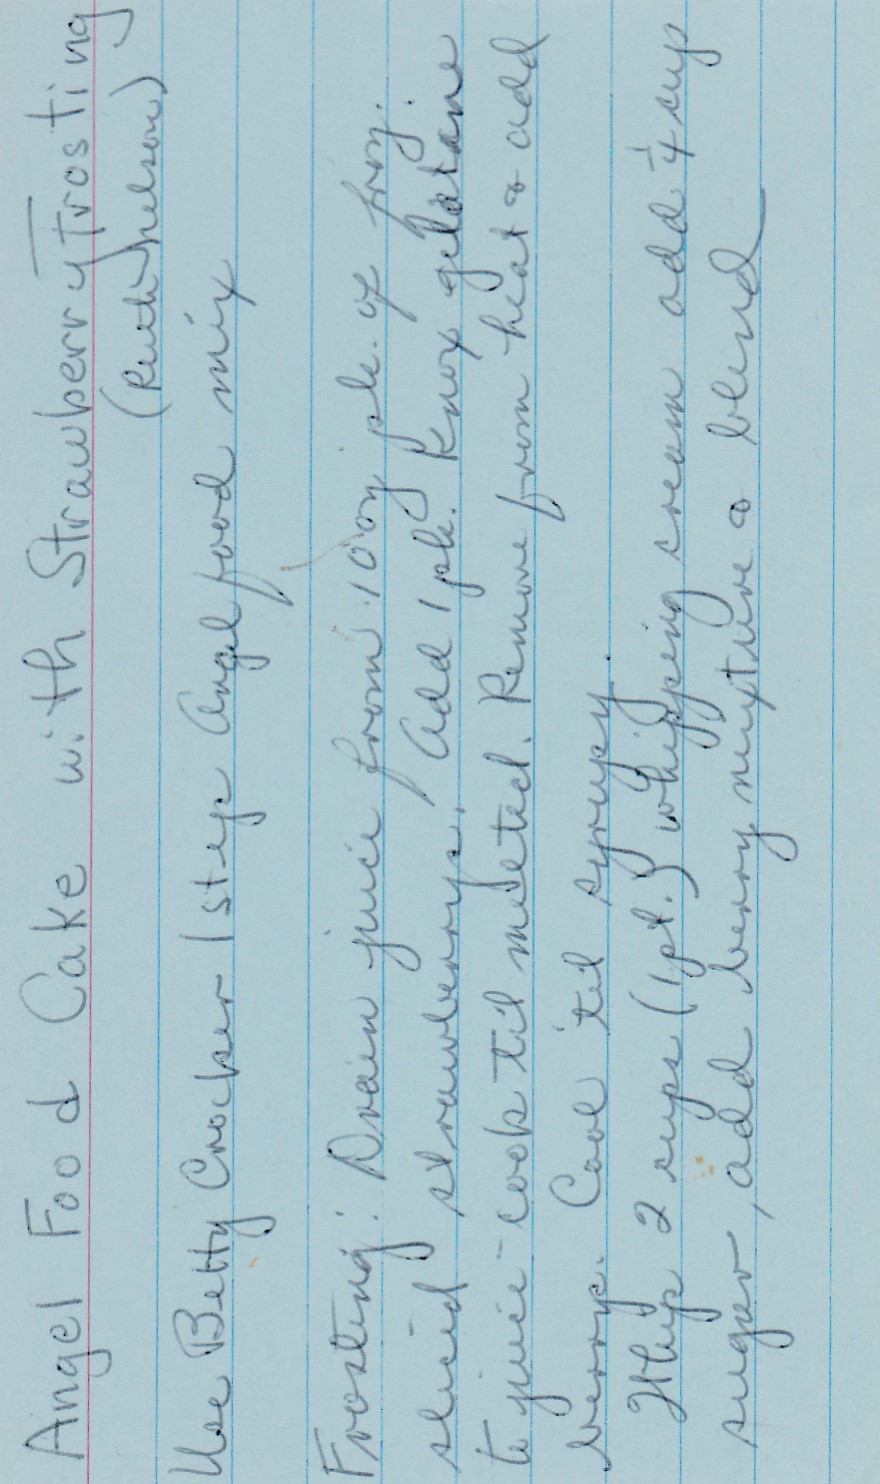 Angel Food Cake with Strawberry Frosting
(Ruth Nelson)
Use Betty Crocker 1 step Angel food mix
Frosting: Drain juice from 10 oz pk. of froz.
sliced strawberrys. Add 1 pk. Knox gelatine
to juice - cook til melted. Remove from heat & add
berrys. Cool 'til syrupy.
Whip 2 cups (1 pt.) whipping cream add 1/4 cup
sugar, add berry mixture & blend